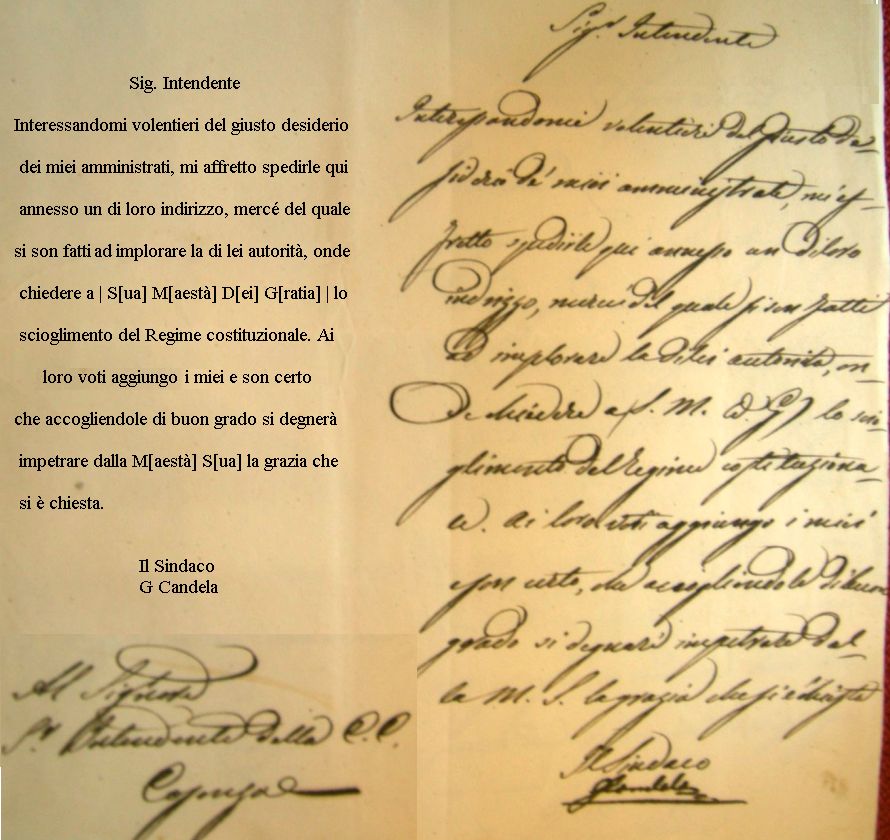 Sig. Intendente
Interessandomi volentieri del giusto desiderio
dei miei amministrati, mi affretto spedirle qui
annesso un di loro indirizzo, mercé del quale
si son fatti ad implorare la di lei autorità, onde
chiedere a | S[ua] M[aestà] D[ei] G[ratia] | lo
scioglimento del Regime costituzionale. Ai
loro voti aggiungo i miei e son certo
che accogliendole di buon grado si degnerà
impetrare dalla M[aestà] S[ua] la grazia che
si è chiesta.
Il Sindaco
G Candela
Al Signore
Sr. Intendente della
Capua
Sigr. Intendente
Interessandomi volentieri del giusto de-
siderio de' miei amministrati, mi af-
fretto spedirle qui annesso un di loro
indirizzo, mercé del quale si son fatti
ad implorare la di lei autorità, on-
de chiedere a S. M. D. G. lo scio-
glimento del Regime costituziona-
le. Ai loro voti aggiungo i miei
e son certo, che accogliendole di buon
grado si degnerà impetrare dal-
la M. S. la grazia che si è chiesta
Il Sindaco
GCandela